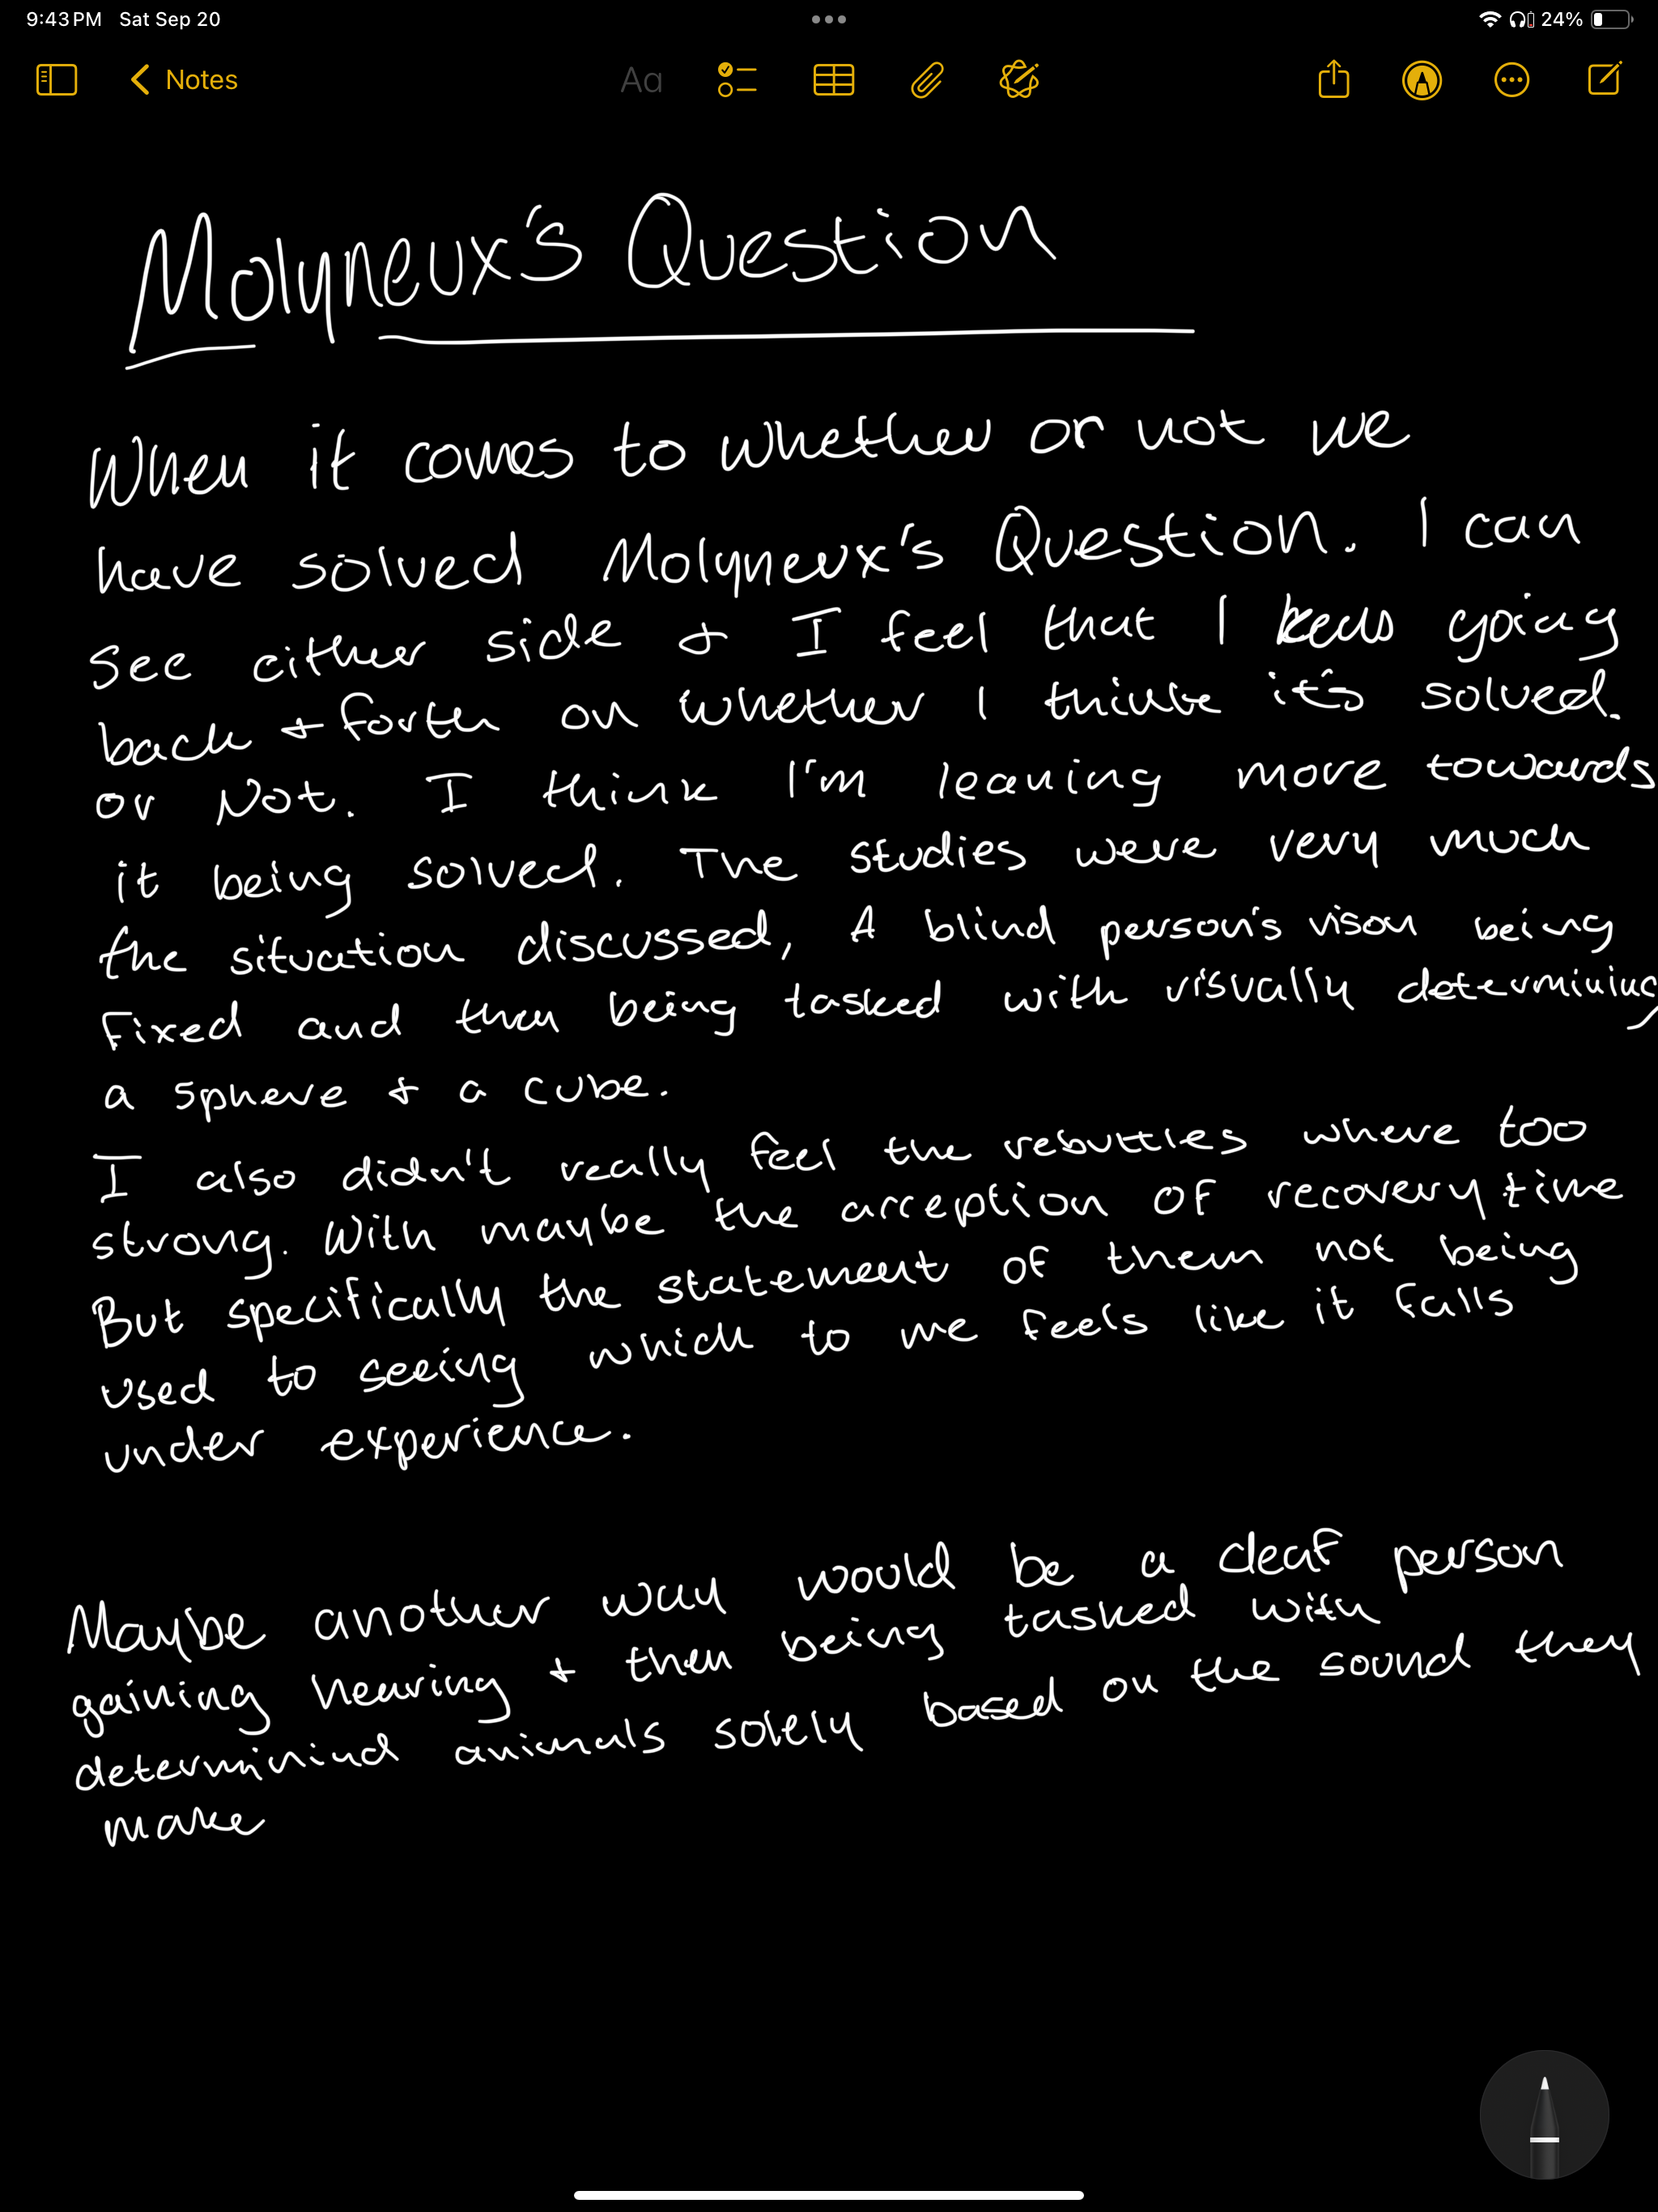 9:43 PM Sat Sep 20
24%
Notes
Aa
Molyneux's Question
When it comes to whether or not we
have solved Molyneux's Question. I can
see either side & I feel that I going
back & forth on whether I think it's solved.
or Not. I think I'm leaning more towards
it being solved. The studies were very much
the situation discussed, A blind person's vison being
fixed and then being tasked with visually determining
a sphere & a cube.
I also didn't really feel the rebuttles where too
strong. With maybe the acception of recovery time
But specifically the statement of them not being
used to seeing which to me feels like it falls
under experience.
Maybe another way would be a deaf person
gaining hearing & then being tasked with
determinind animals solely based on the sound they
make